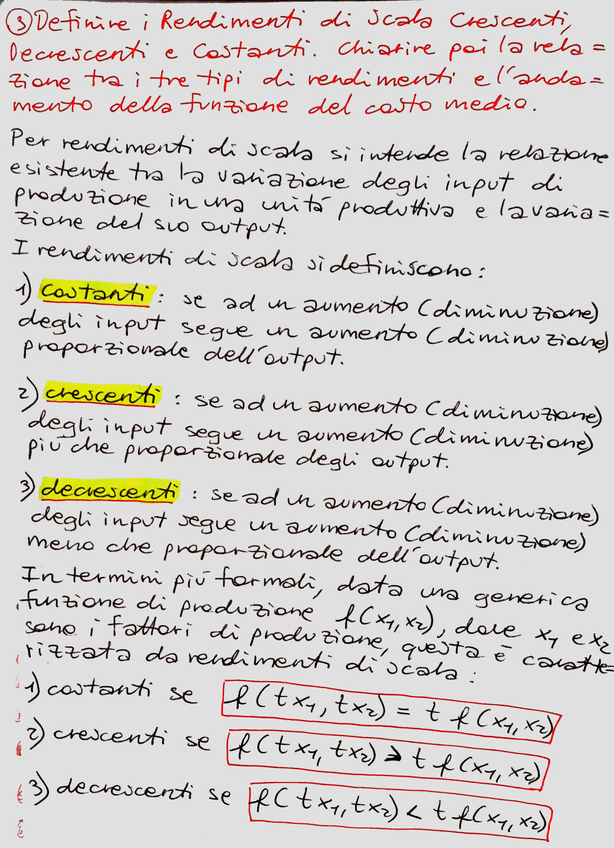 ③ Definire i Rendimenti di scala Crescenti,
Decrescenti e Costanti. Chiarire poi la rela=
zione tra i tre tipi di rendimenti e l'anda=
mento della funzione del costo medio.
Per rendimenti di scala si intende la relazione
esistente tra la variazione degli input di
produzione in una unità produttiva e la varia=
zione del suo output.
I rendimenti di scala si definiscono:
1) costanti: se ad un aumento (diminuzione)
degli input segue un aumento (diminuzione)
proporzionale dell'output.
2) crescenti: se ad un aumento (diminuzione)
degli input segue un aumento (diminuzione)
più che proporzionale degli output.
3) decrescenti: se ad un aumento (diminuzione)
degli input segue un aumento (diminuzione)
meno che proporzionale dell'output.
In termini più formali, data una generica
funzione di produzione f(x1,x2), dove x1 e x2
sono i fattori di produzione, questa è caratte=
rizzata da rendimenti di scala:
1) costanti se f(tx1,tx2) = t f(x1,x2)
2) crescenti se f(tx1,tx2) > t f(x1,x2)
3) decrescenti se f(tx1,tx2) < t f(x1,x2)